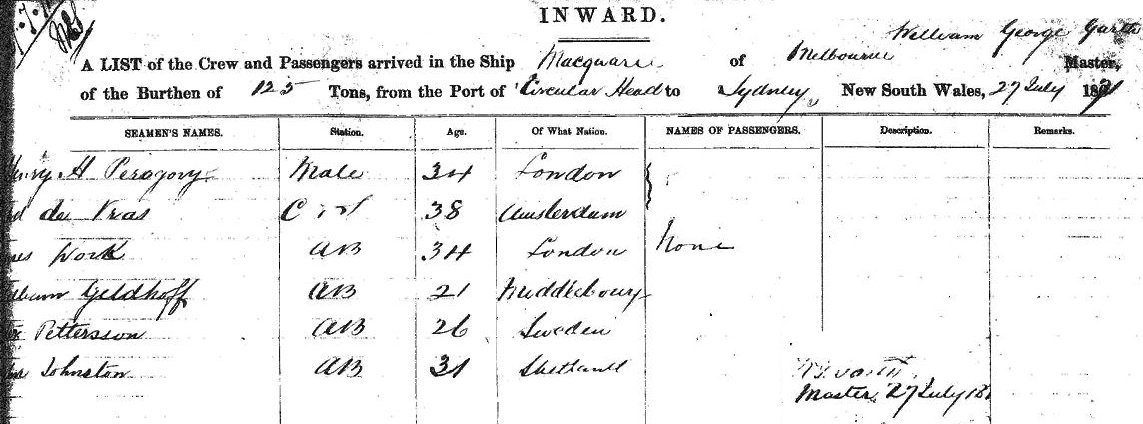 INWARD.
William George Garth
A LIST of the Crew and Passengers arrived in the Ship Macquarie of Melbourne Master,
of the Burthen of 125 Tons, from the Port of Circular Head to Sydney, New South Wales, 27 July 1871
SEAMEN'S NAMES. Station. Age. Of What Nation. NAMES OF PASSENGERS. Description. Remarks.
H Peragory Mate 34 London
de Vras 38 Amsterdam
Work AB 34 London None
Geldhoff AB 21 Middlebourg
Pettersson AB 26 Sweden
Johnston AB 31 Shetland
Master 27 July